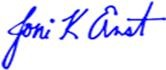 Joni K Ernst